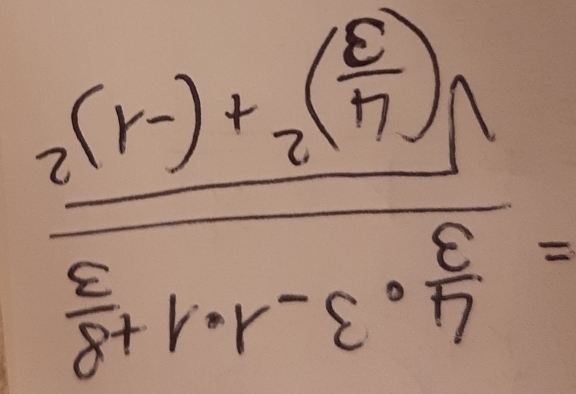 = (4/3 · 3 - 1 · 1 + 8/3) / √((4/3)² + (-1)²)